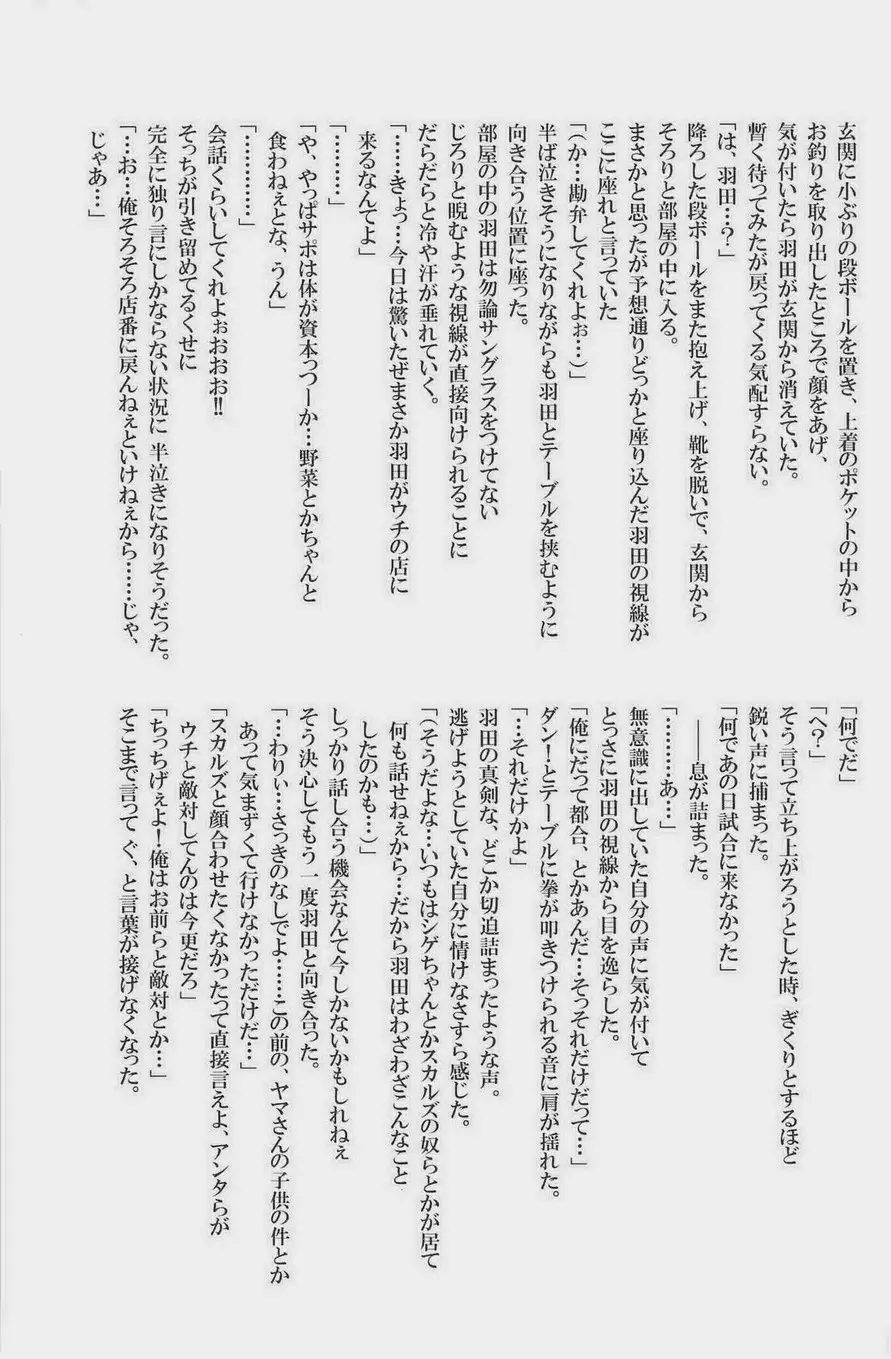 玄関に小ぶりの段ボールを置き、上着のポケットの中から
お釣りを取り出したところで顔をあげ、
気が付いたら羽田が玄関から消えていた。
暫く待ってみたが戻ってくる気配すらない。
「は、羽田…?」
降ろした段ボールをまた抱え上げ、靴を脱いで、玄関から
そろりと部屋の中に入る。
まさかと思ったが予想通りどっかと座り込んだ羽田の視線が
ここに座れと言っていた
「(か…勘弁してくれよぉ…)」
半ば泣きそうになりながらも羽田とテーブルを挟むように
向き合う位置に座った。
部屋の中の羽田は勿論サングラスをつけてない
じろりと睨むような視線が直接向けられることに
だらだらと冷や汗が垂れていく。
「……きょっ…今日は驚いたぜまさか羽田がウチの店に
来るなんてよ」
「…………」
「や、やっぱサポは体が資本っつーか…野菜とかちゃんと
食わねぇとな、うん」
「…………」
会話くらいしてくれよぉおおお!!
そっちが引き留めてるくせに
完全に独り言にしかならない状況に 半泣きになりそうだった。
「…お…俺そろそろ店番に戻んねぇといけねぇから……じゃ、
じゃあ…」
「何でだ」
「へ?」
そう言って立ち上がろうとした時、ぎくりとするほど
鋭い声に捕まった。
「何であの日試合に来なかった」
――息が詰まった。
「…………あ…」
無意識に出していた自分の声に気が付いて
とっさに羽田の視線から目を逸らした。
「俺にだって都合、とかあんだ…そっそれだけだって…」
ダン!とテーブルに拳が叩きつけられる音に肩が揺れた。
「…それだけかよ」
羽田の真剣な、どこか切迫詰まったような声。
逃げようとしていた自分に情けなさすら感じた。
「(そうだよな…いつもはシゲちゃんとかスカルズの奴らとかが居て
何も話せねぇから…だから羽田はわざわざこんなこと
したのかも…)」
しっかり話し合う機会なんて今しかないかもしれねぇ
そう決心してもう一度羽田と向き合った。
「…わりぃ…さっきのなしでよ……この前の、ヤマさんの子供の件とか
あって気まずくて行けなかっただけだ…」
「スカルズと顔合わせたくなかったって直接言えよ、アンタらが
ウチと敵対してんのは今更だろ」
「ちっちげぇよ!俺はお前らと敵対とか…」
そこまで言って ぐ、と言葉が接げなくなった。